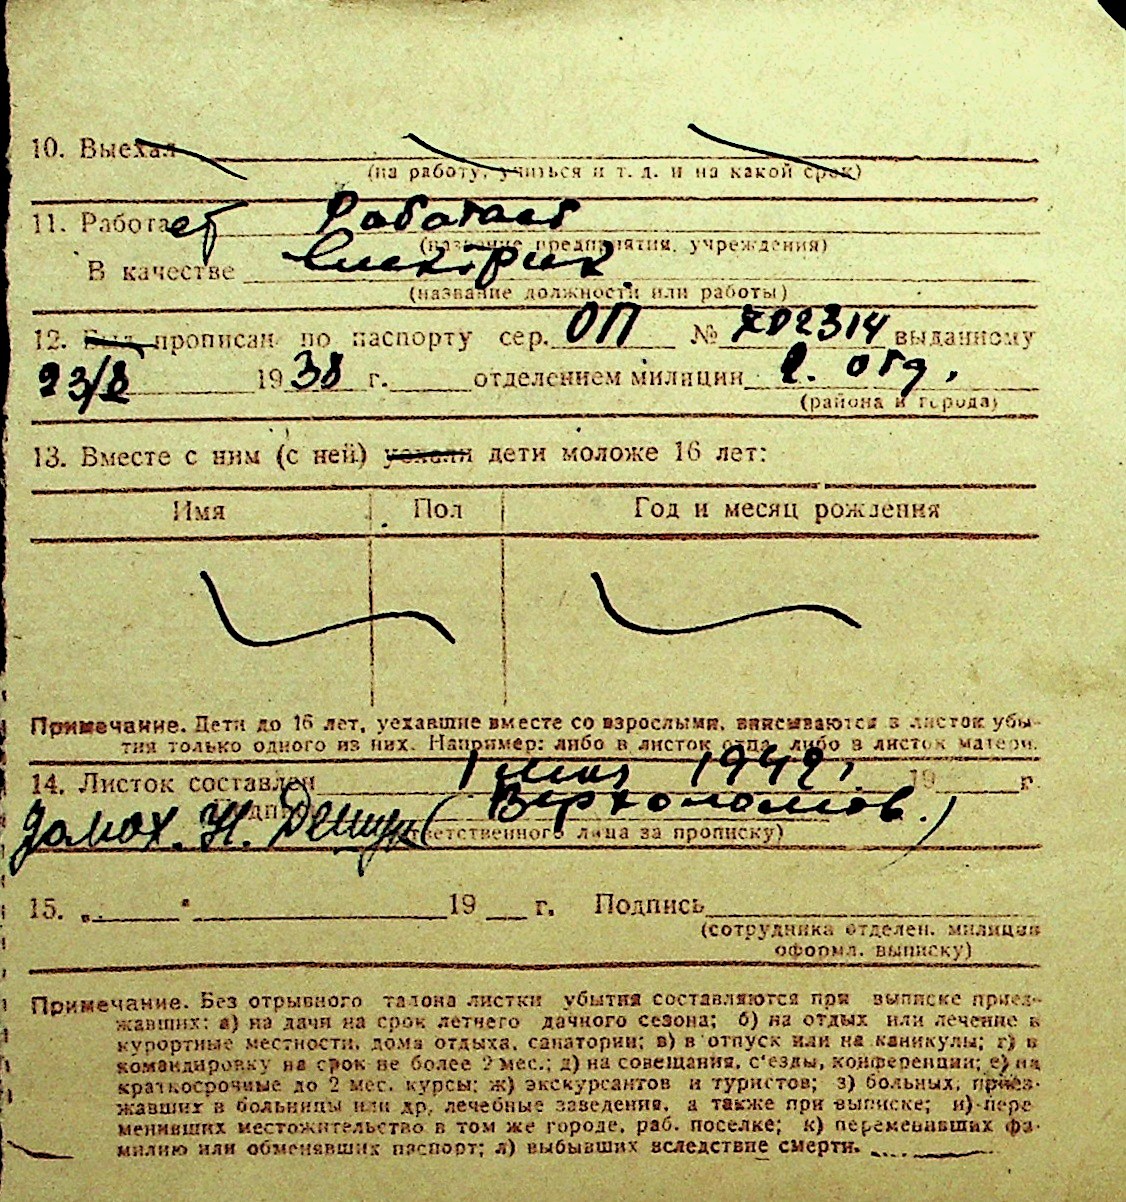 10. Выехал
(на работу, учиться и т. д. и на какой срок)
11. Работает Работает
(название предприятия, учреждения)
В качестве Електрик
(название должности или работы)
12. Был прописан по паспорту сер. ОП № 702314 выданному
23/8 1938 г. отделением милиции 2. отд.
(района и города)
13. Вместе с ним (с ней) уехали дети моложе 16 лет:
Имя Пол Год и месяц рождения
Примечание. Дети до 16 лет, уехавшие вместе со взрослыми, вписываются в листок убы-
тия только одного из них. Например: либо в листок отца, либо в листок матери.
14. Листок составлен 1 мая 1942, 19 г.
Домох. Н. (Верхоломов.)
ответственного лица за прописку)
15. „ " 19 г. Подпись
(сотрудника отделен. милиции
оформл. выписку)
Примечание. Без отрывного талона листки убытия составляются при выписке приез-
жавших: а) на дачи на срок летнего дачного сезона; б) на отдых или лечение в
курортные местности, дома отдыха, санатории; в) в отпуск или на каникулы; г) в
командировку на срок не более 2 мес.; д) на совещания, с'езды, конференции; е) на
краткосрочные до 2 мес. курсы; ж) экскурсантов и туристов; з) больных, приез-
жавших в больницы или др. лечебные заведения, а также при выписке; и) пере-
менивших местожительство в том же городе, раб. поселке; к) переменивших фа-
милию или обменявших паспорт; л) выбывших вследствие смерти.